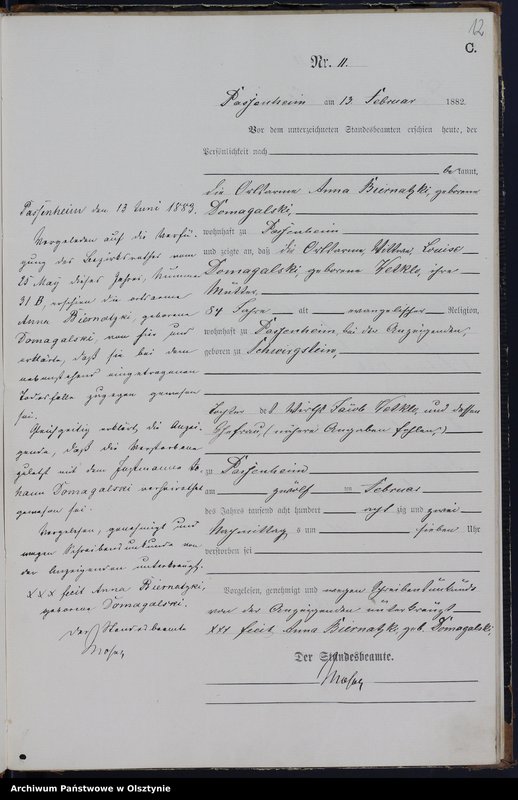 12
C.
Nr. 11.
Passenheim am 13 Februar 1882.
Vor dem unterzeichneten Standesbeamten erschien heute, der
Persönlichkeit nach
be kannt,
die Ortsarme Anna Biernatzki, geborene
Domagalski,
wohnhaft zu Passenheim
und zeigte an, daß die Ortsarme, Wittwe, Louise
Domagalski, geborene Vetklo, ihre
Mutter,
84 Jahre alt evangelischer Religion,
wohnhaft zu Passenheim, bei der Anzeigenden,
geboren zu
Tochter des Wirths Jacob Vetklo, und dessen
Ehefrau, (nähere Angaben fehlen,)
zu Passenheim
am zwölf ten Februar
des Jahres tausend acht hundert acht zig und zwei
Nachmittag s um sieben Uhr
verstorben sei
Vorgelesen, genehmigt und wegen Schreibensunkunde
von der Anzeigenden unterkreuzt
xxx fecit Anna Biernatzki, geb. Domagalski,
Der Standesbeamte.
Passenheim den 13 Juni 1883.
Vorgeladen auf die Verfü-
gung des Bezirksrathes vom
25 May dieses Jahres, Nummer
31 B, erschien die ortsarme
Anna Biernatzki, geborene
Domagalski, von hier und
erklärte, daß sie bei dem
nebenstehend eingetragenen
Todesfalle zugegen gewesen
sei.
Gleichzeitig erklärt, die Anzei-
gende, daß die Verstorbene
zuletzt mit dem Jo-
hann Domagalski verheirathet
gewesen sei.
Vorgelesen, genehmigt und
wegen Schreibensunkunde von
der Anzeigenden unterkreuzt.
xxx fecit Anna Biernatzki,
geborene Domagalski.
Der Standesbeamte
Archiwum Państwowe w Olsztynie